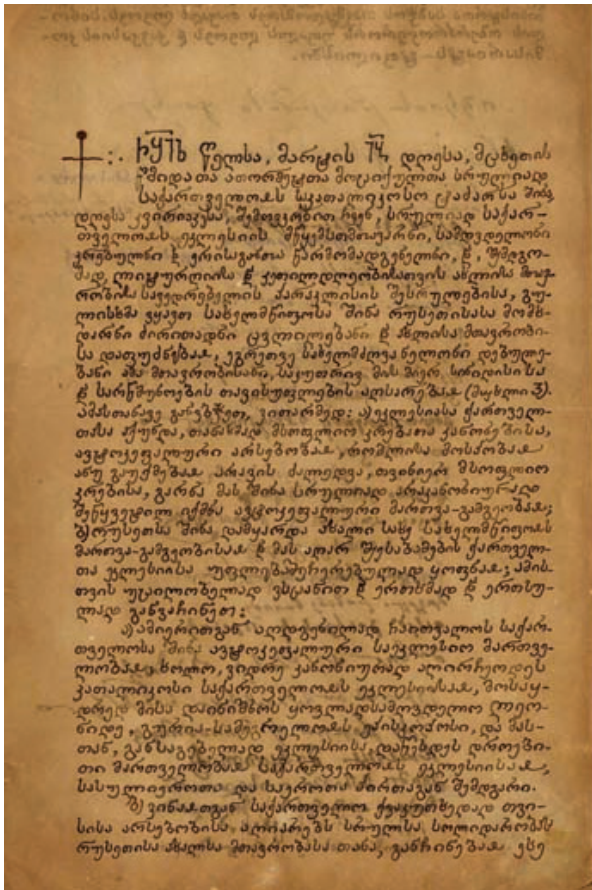 ჩყიზ წელსა, მარტის იბ დღესა, მცხეთის
წმიდათა ათორმეტთა მოციქულთა სრულიად
საქართველოჲს საკათალიკოსო ტაძარსა შინა
დღესა კვირიაკესა, შემოვკრბით ჩვენ, სრულიად საქარ-
თველოჲს ეკლესიის მწყემსთმთავარნი, სამღვდელონი
კრებულნი და ერისგანთა წარმომადგენელნი, და, შემდგო-
მად, ლიტურღიისა და კეთილდღეობისათვის ახლისა მთავ-
რობისა სავედრებელის პარაკლისის შესრულებისა, გუ-
ლისხმა ვყავთ სახელმწიფოსა შინა რუსეთისასა მომხ-
დარნი ძირითადნი ცვლილებანი და ახლისა მთავრობი-
სა დაფუძნებაჲ, ეგრეთვე სახელმძღვანელონი დებულე-
ბანი ამა მთავრობისანი, საკუთრივ მის მიერ სინიდისისა
და სარწმუნოების თავისუფლების აღსარებაჲ (მუხლი 3).
ამასთანავე განვბჭეთ, ვითარმედ: ა) ეკლესიასა ქართველ-
თასა აქუნდა, თანახმად მსოფლიო კრებათა კანონებისა,
ავტოკეფალური არსებობაჲ, რომლისა მოსპობაჲ
ანუ გაუქმებაჲ არავის ძალედვა, თვინიერ მსოფლიო
კრებისა, გარნა მას შინა სრულიად არაკანონიურად
შეწყვეტილ იქმნა ავტოკეფალური მართვა-გამგეობაჲ;
ბ) რუსეთსა შინა დამყარდა ახალი სახე სახელმწიფოჲს
მართვა-გამგეობისაჲ და მას აღარ შეესაბამების ქართველ-
თა ეკლესიისა უფლებაშეჩერებულად ყოფნაჲ; ამის-
თვის უცილობელად ვსცანით და ერთხმად და ერთსუ-
ლად განვაჩინეთ:
ა) ამიერითგან აღდგენილად ჩაითვალოს საქარ-
თველოსა შინა ავტოკეფალური საეკლესიო მართვე-
ლობაჲ. ხოლო, ვიდრე კანონიურად აღირჩეოდეს
კათალიკოსი საქართველოჲს ეკლესიისაჲ, მოსაყ-
დრედ მისა დაინიშნოს ყოვლადსამღვდელო ლეო-
ნიდე, გურია-სამეგრელოჲს ეპისკოპოსი, და მას-
თან, განსაგებელად ეკლესიისა, დაწესდეს დროები-
თი მართველობაჲ საქართველოჲს ეკლესიისაჲ,
სასულიეროთა და საეროთა პირთაგან შემდგარი.
ბ) ვინაჲთგან საქართველო ქვაკუთხედად თვი-
სისა არსებობისა აღიარებს სრულსა სოლიდარობას
რუსეთისა ახალსა მთავრობასა თანა, განჩინებაჲ ესე